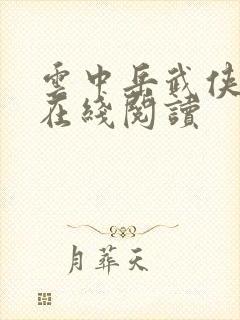 雲中岳武俠
在綫閱讀
月葬天